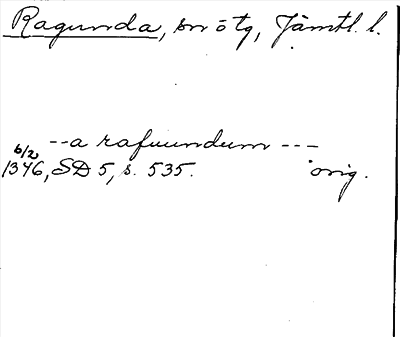 Ragunda, sn ö tg, Jämtl. l.
--a rafuundum ---
6/2
1346, SD 5, s. 535. orig.